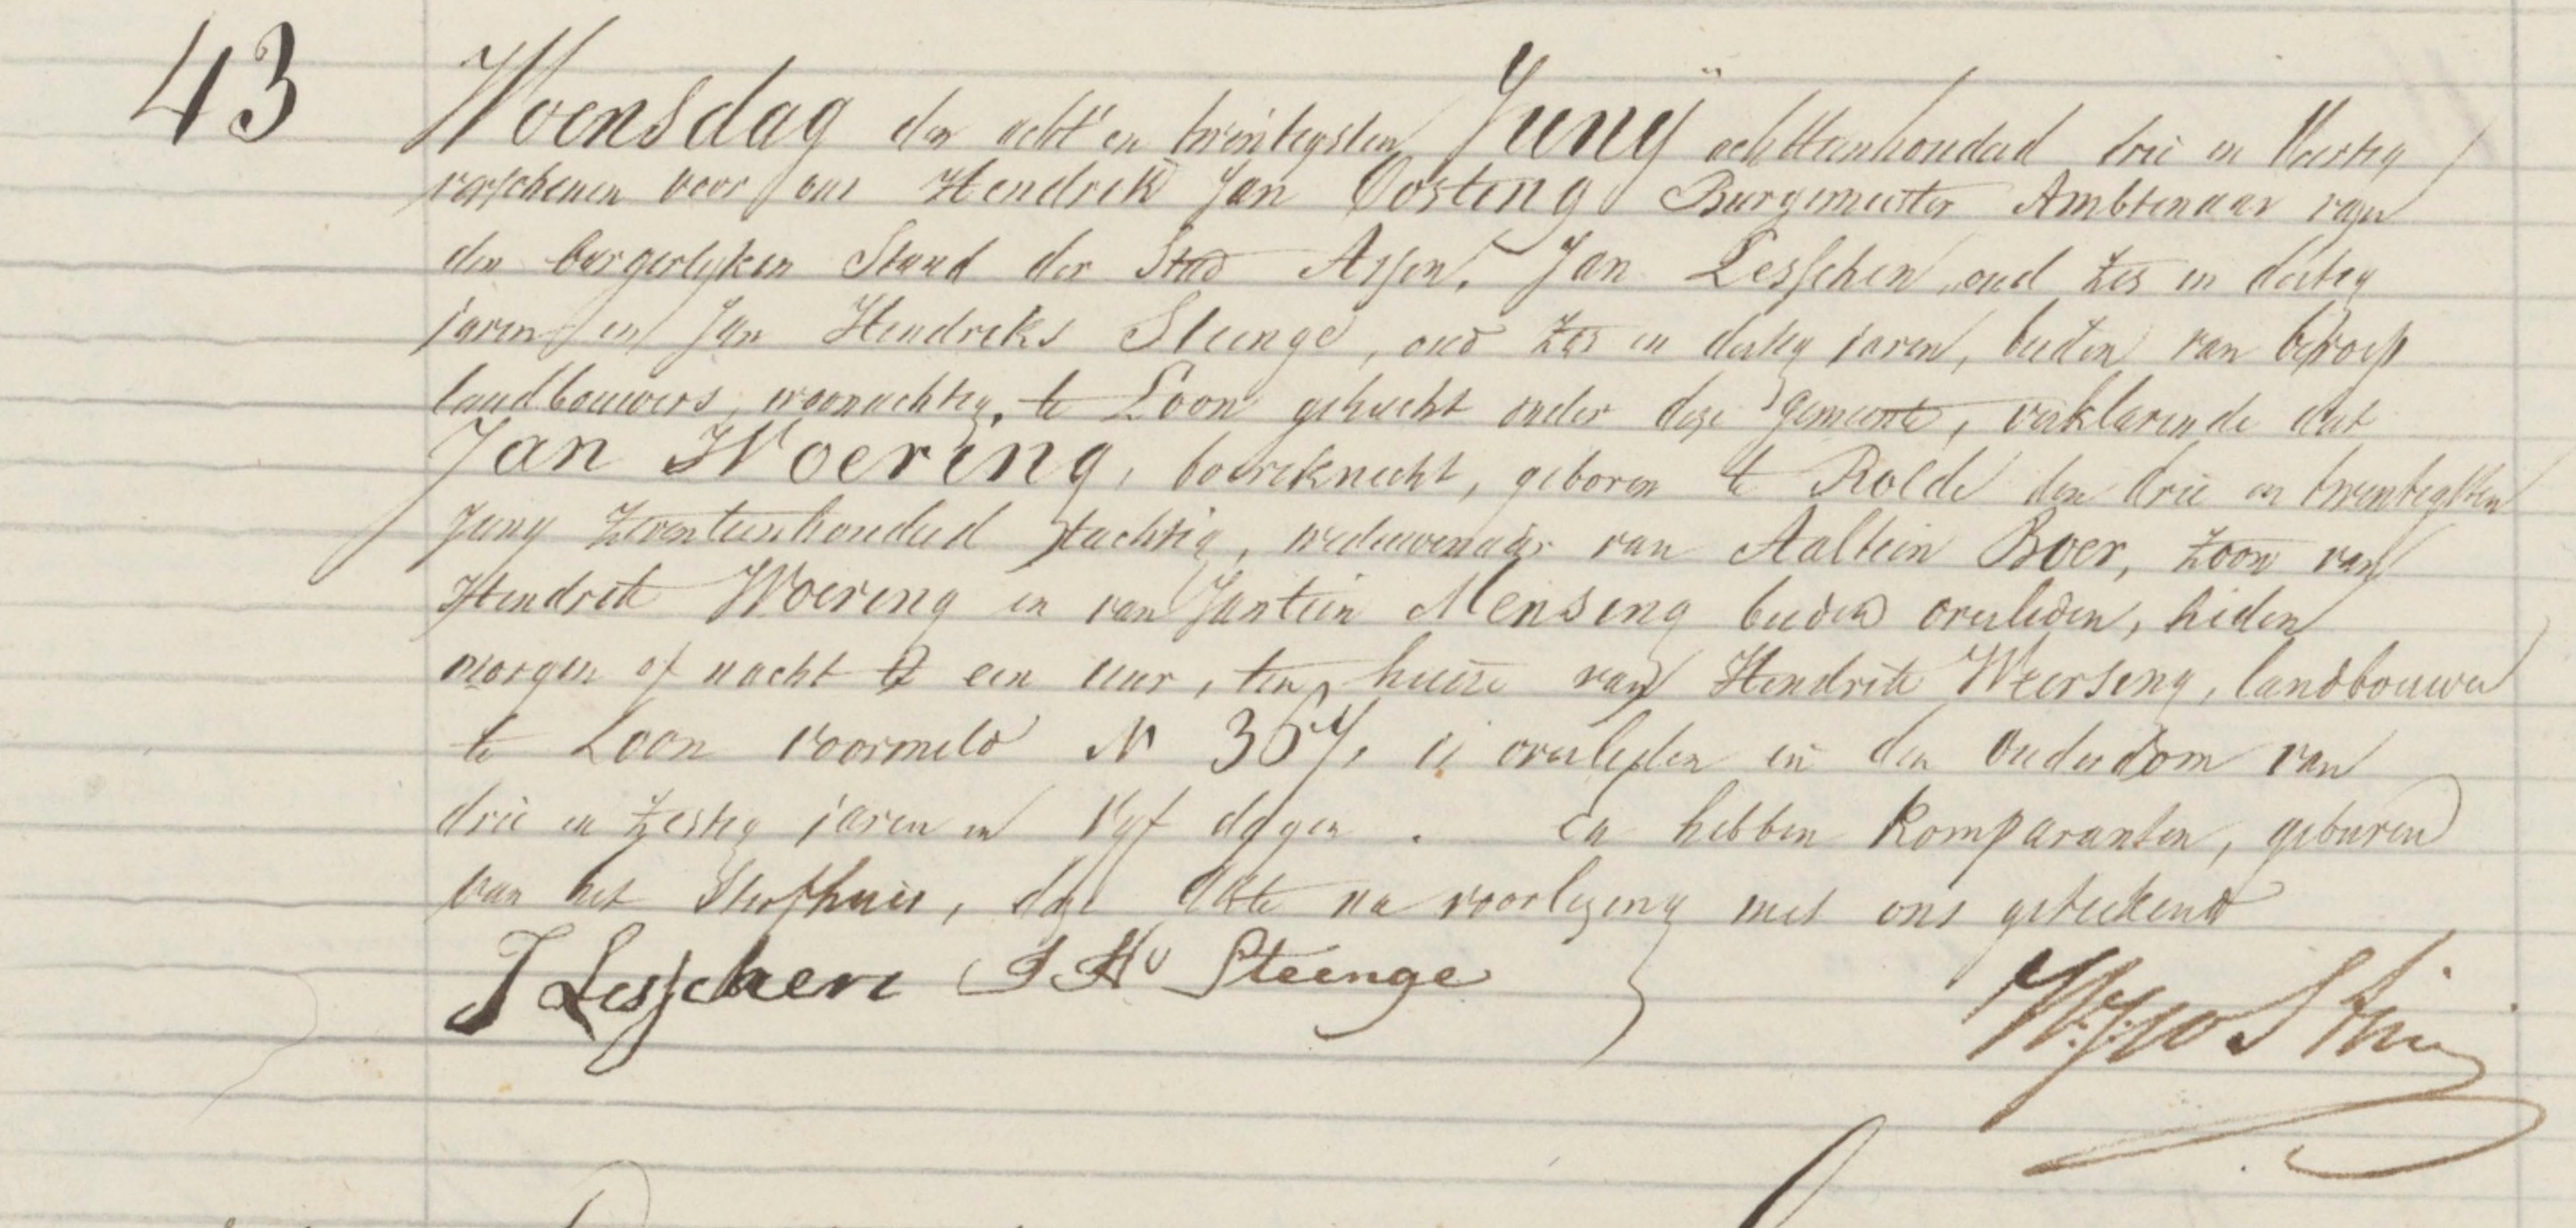 43
Woensdag den acht en twintigsten Junÿ achttienhonderd drie en Veertig
verschenen voor ons Hendrik Jan Oosting Burgemeester Ambtenaar van
den burgerlyken Stand der Stad Assen, Jan Lesschen, oud zes en dertig
jaren en Jan Hendriks Steenge, oud zes en dertig jaren, beiden van beroep
landbouwers, woonachtig, te Loon gehucht onder deze gemeente, verklarende dat
Jan Woering, boereknecht, geboren te Rolde den drie en twintigsten
Juny zeventienhonderd tachtig, weduwenaar van Aaltien Boer, zoon van
Hendrik Woering en van Jantien Mensing beiden overleden, heden
morgen of nacht te een uur, ten huize van Hendrik Weersing, landbouwer
te Loon voormeld N is overleden in den ouderdom van
drie en zestig jaren en vyf dagen. En hebben komparanten, geburen
van het Sterfhuis, deze akte na voorlezing met ons geteekend
J Lesschen J Hs Steenge
HJ Oosting